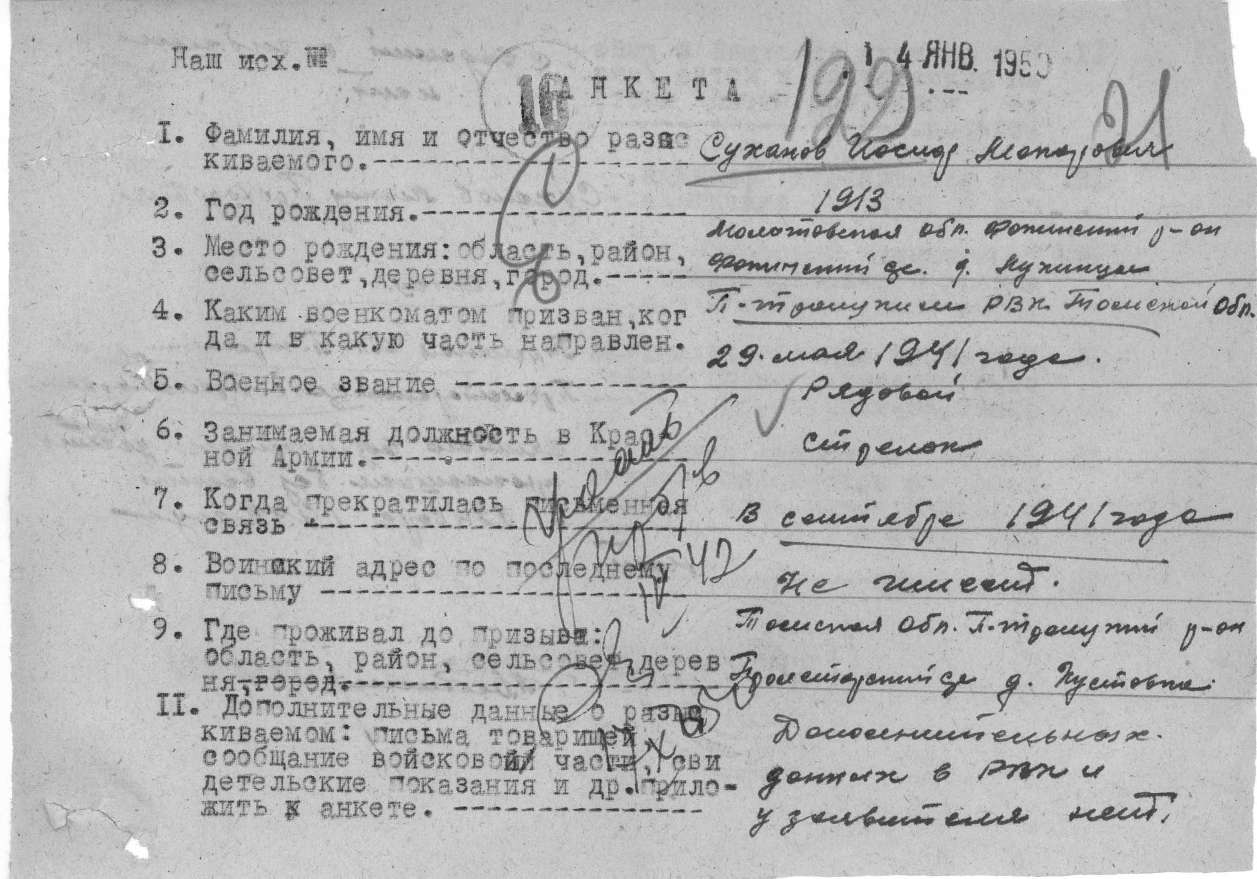 Наш исх.№
14 ЯНВ. 1950
16
АНКЕТА
199
21
I. Фамилия, имя и отчество разыс
киваемого.- Суханов Иосиф
2. Год рождения.- 1913
3. Место рождения:область,район, Молотовская обл. Фокинский р-он
сельсовет,деревня,город.- Фокинский с/с. д.
4. Каким военкоматом призван,ког П-Троицким РВК Томской Обл.
да и в какую часть направлен. 29 мая 1941 года.
5. Военное звание - Рядовой
6. Занимаемая должность в Крас
ной Армии.- стрелок
7. Когда прекратилась письменная
связь - В сентябре 1941 года
8. Воинский адрес по последнему
письму - Не имеет.
9. Где проживал до призыва: Томская Обл. П-Троицкий р-он
область, район, сельсовет,дерев Пролетарский с/с д.
ня,город.-
II. Дополнительные данные о разыс
киваемом: письма товарищей, Дополнительных
сообщание войсковой части, сви
детельские показания и др.прило- данных в РВК и
жить к анкете. - у заявителя нет.